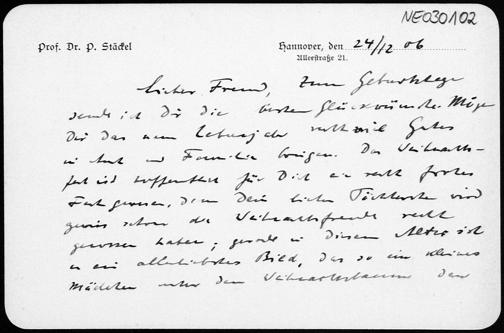 NE030102
Prof. Dr. P. Stäckel
Hannover, den 24/12 06
Allerstraße 21.
Lieber Freund, zum Geburtstage
sende ich Dir die besten Glückwünsche. Möge
Dir das neue Lebensjahr recht viel Gutes
in Amt und Familie bringen. Das Weihnachts-
fest ist hoffentlich für Dich ein recht frohes
Fest gewesen, denn Dein liebes Töchterchen wird
gewiss schon die Weihnachtsfreude recht
genossen haben; gerade in diesem Alter ist
es ein allerliebstes Bild, das so ein kleines
Mädchen unter dem Weihnachtsbaume